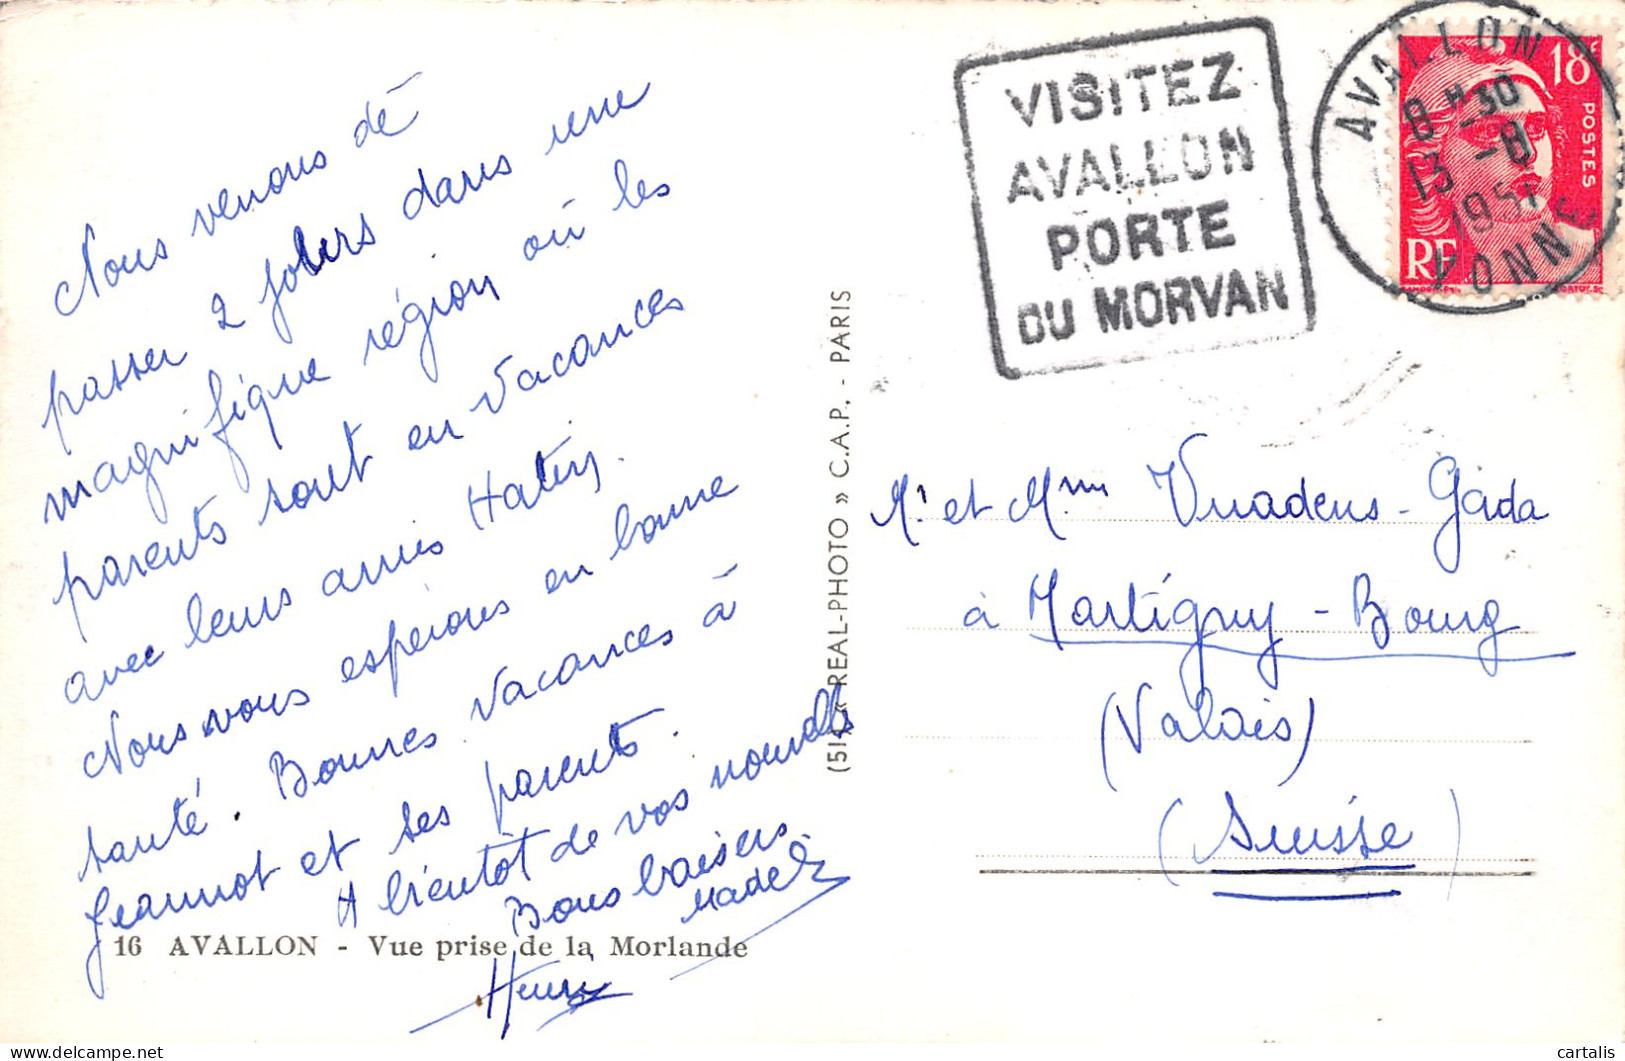 Nous venons de
passer 2 jours dans une
magnifique région où les
parents sont en vacances
avec leurs amis
Nous vous espérons en bonne
santé. Bonnes vacances à
Jeannot et ses parents.
A bientôt de vos nouvelles
Bons baisers
Madel
Henri
16 AVALLON - Vue prise de la Morlande
(51) « REAL-PHOTO » C.A.P. - PARIS
VISITEZ
AVALLON
PORTE
DU MORVAN
AVALLON
8 H 30
13 -8
1951
YONNE
18F
POSTES
RF
Mr et Mme Vuadens - Gada
à Martigny - Bourg
(Valais)
(Suisse)
cartalis